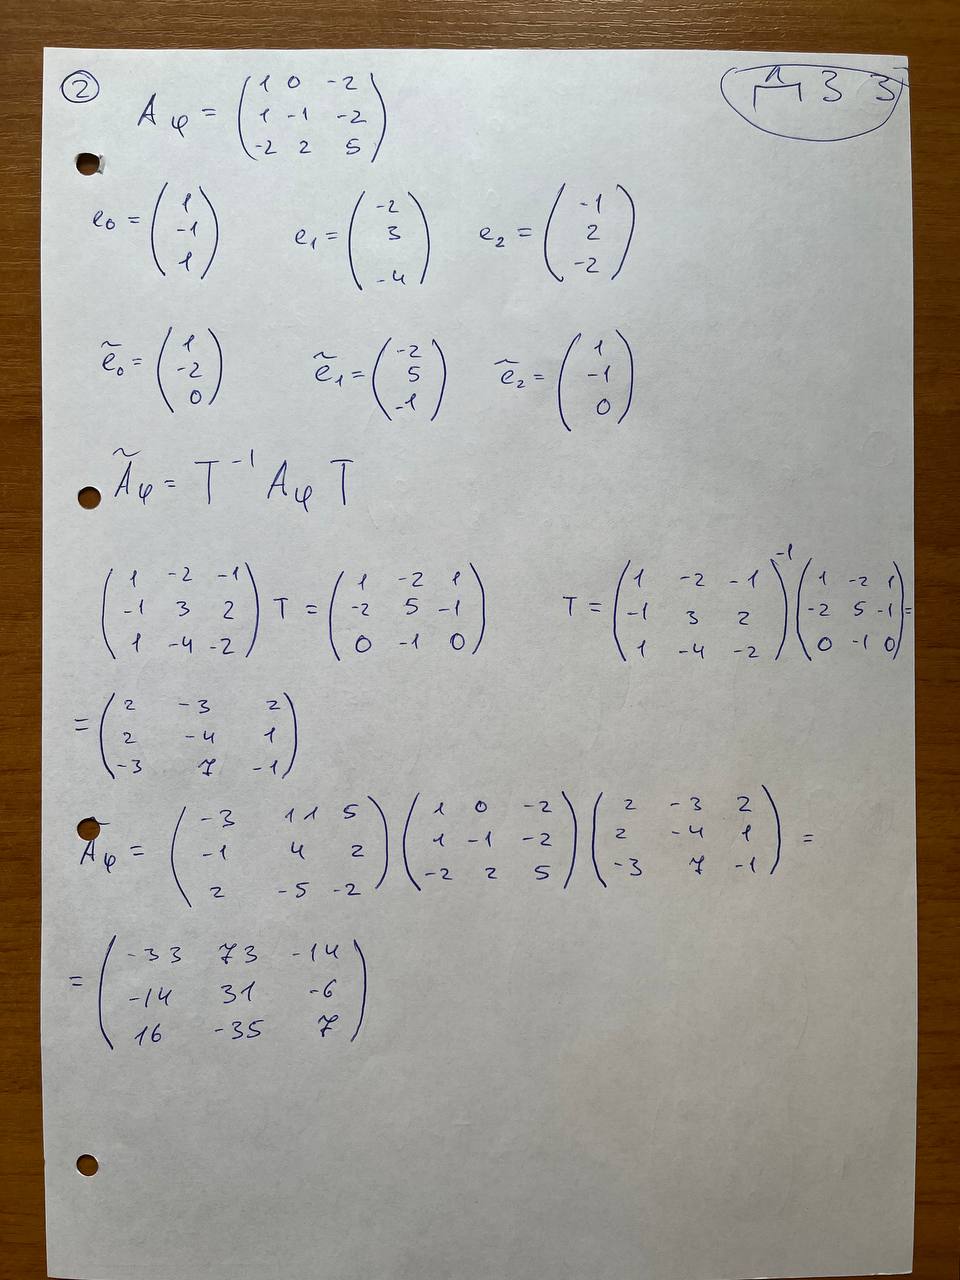 ② ДЗ 3
A_φ = (1 0 -2
1 -1 -2
-2 2 5)
e₀ = (1 -1 1) e₁ = (-2 3 -4) e₂ = (-1 2 -2)
ẽ₀ = (1 -2 0) ẽ₁ = (-2 5 -1) ẽ₂ = (1 -1 0)
Ã_φ = T⁻¹ A_φ T
(1 -2 -1
-1 3 2
1 -4 -2) T = (1 -2 1
-2 5 -1
0 -1 0) T = (1 -2 -1
-1 3 2
1 -4 -2)⁻¹ (1 -2 1
-2 5 -1
0 -1 0) =
= (2 -3 2
2 -4 1
-3 7 -1)
Ã_φ = (-3 11 5
-1 4 2
2 -5 -2) (1 0 -2
1 -1 -2
-2 2 5) (2 -3 2
2 -4 1
-3 7 -1) =
= (-33 73 -14
-14 31 -6
16 -35 7)